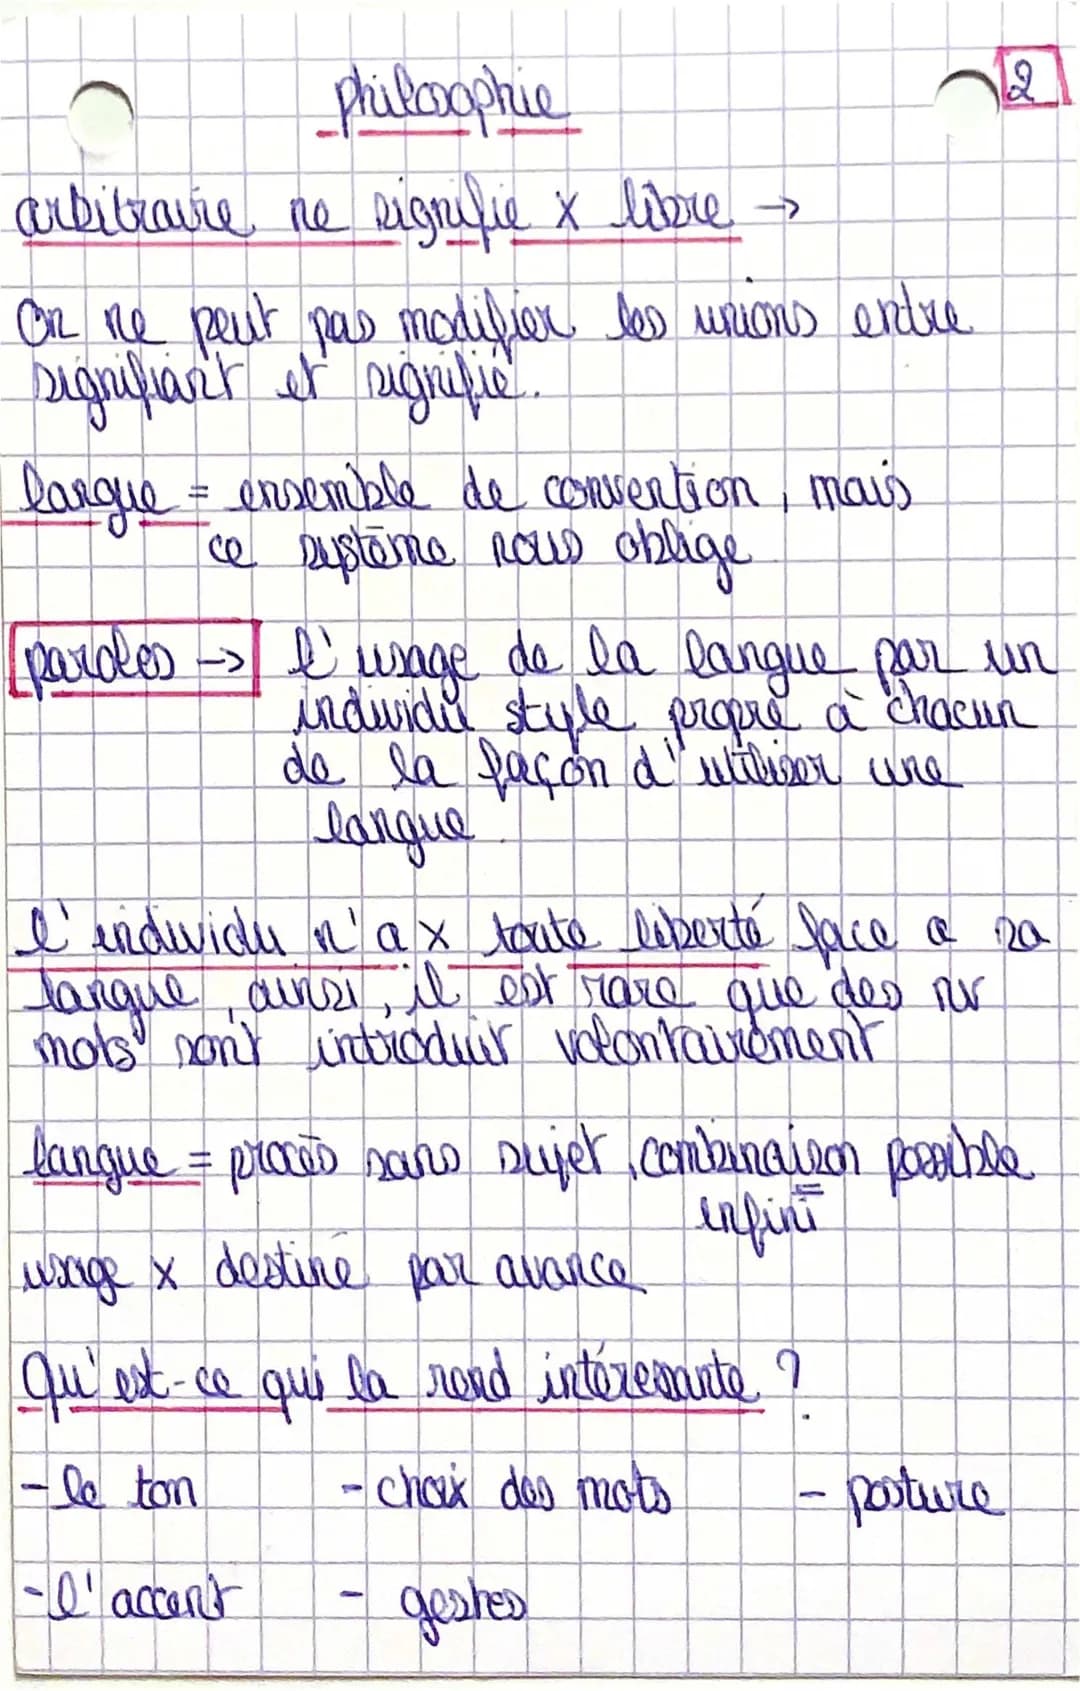 philosophie
2
arbitraire ne signifie x libre →
On ne peut pas modifier les unions entre
signifiant et signifié.
langue = ensemble de convention, mais
ce système nous oblige
paroles → l'usage de la langue par un
individu style propre à chacun
de la façon d'utiliser une
langue.
l'individu n'a x toute liberté face a sa
langue, ainsi, il est rare que des nv
mots sont introduit volontairement
langue = procès sans sujet, combinaison possible
infini
usage x destiné par avance
Qu'est-ce qui la rend intéressante ?
- le ton - choix des mots - posture
- l'accent - gestes